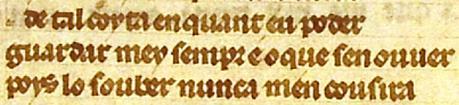 de tal coyta en quant eu poder
guardar mey sempr e o que sen ouuer
poys lo souber nunca men cousira